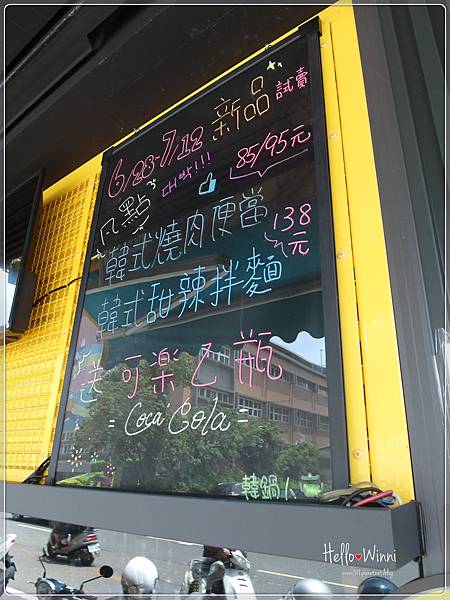 6/23-7/12 新品試賣
대박!!! 85/95元
凡點
韓式燒肉便當 138元
韓式甜辣拌麵
送可樂乙瓶
=Coca Cola=
韓鍋人
Hello♥Winni